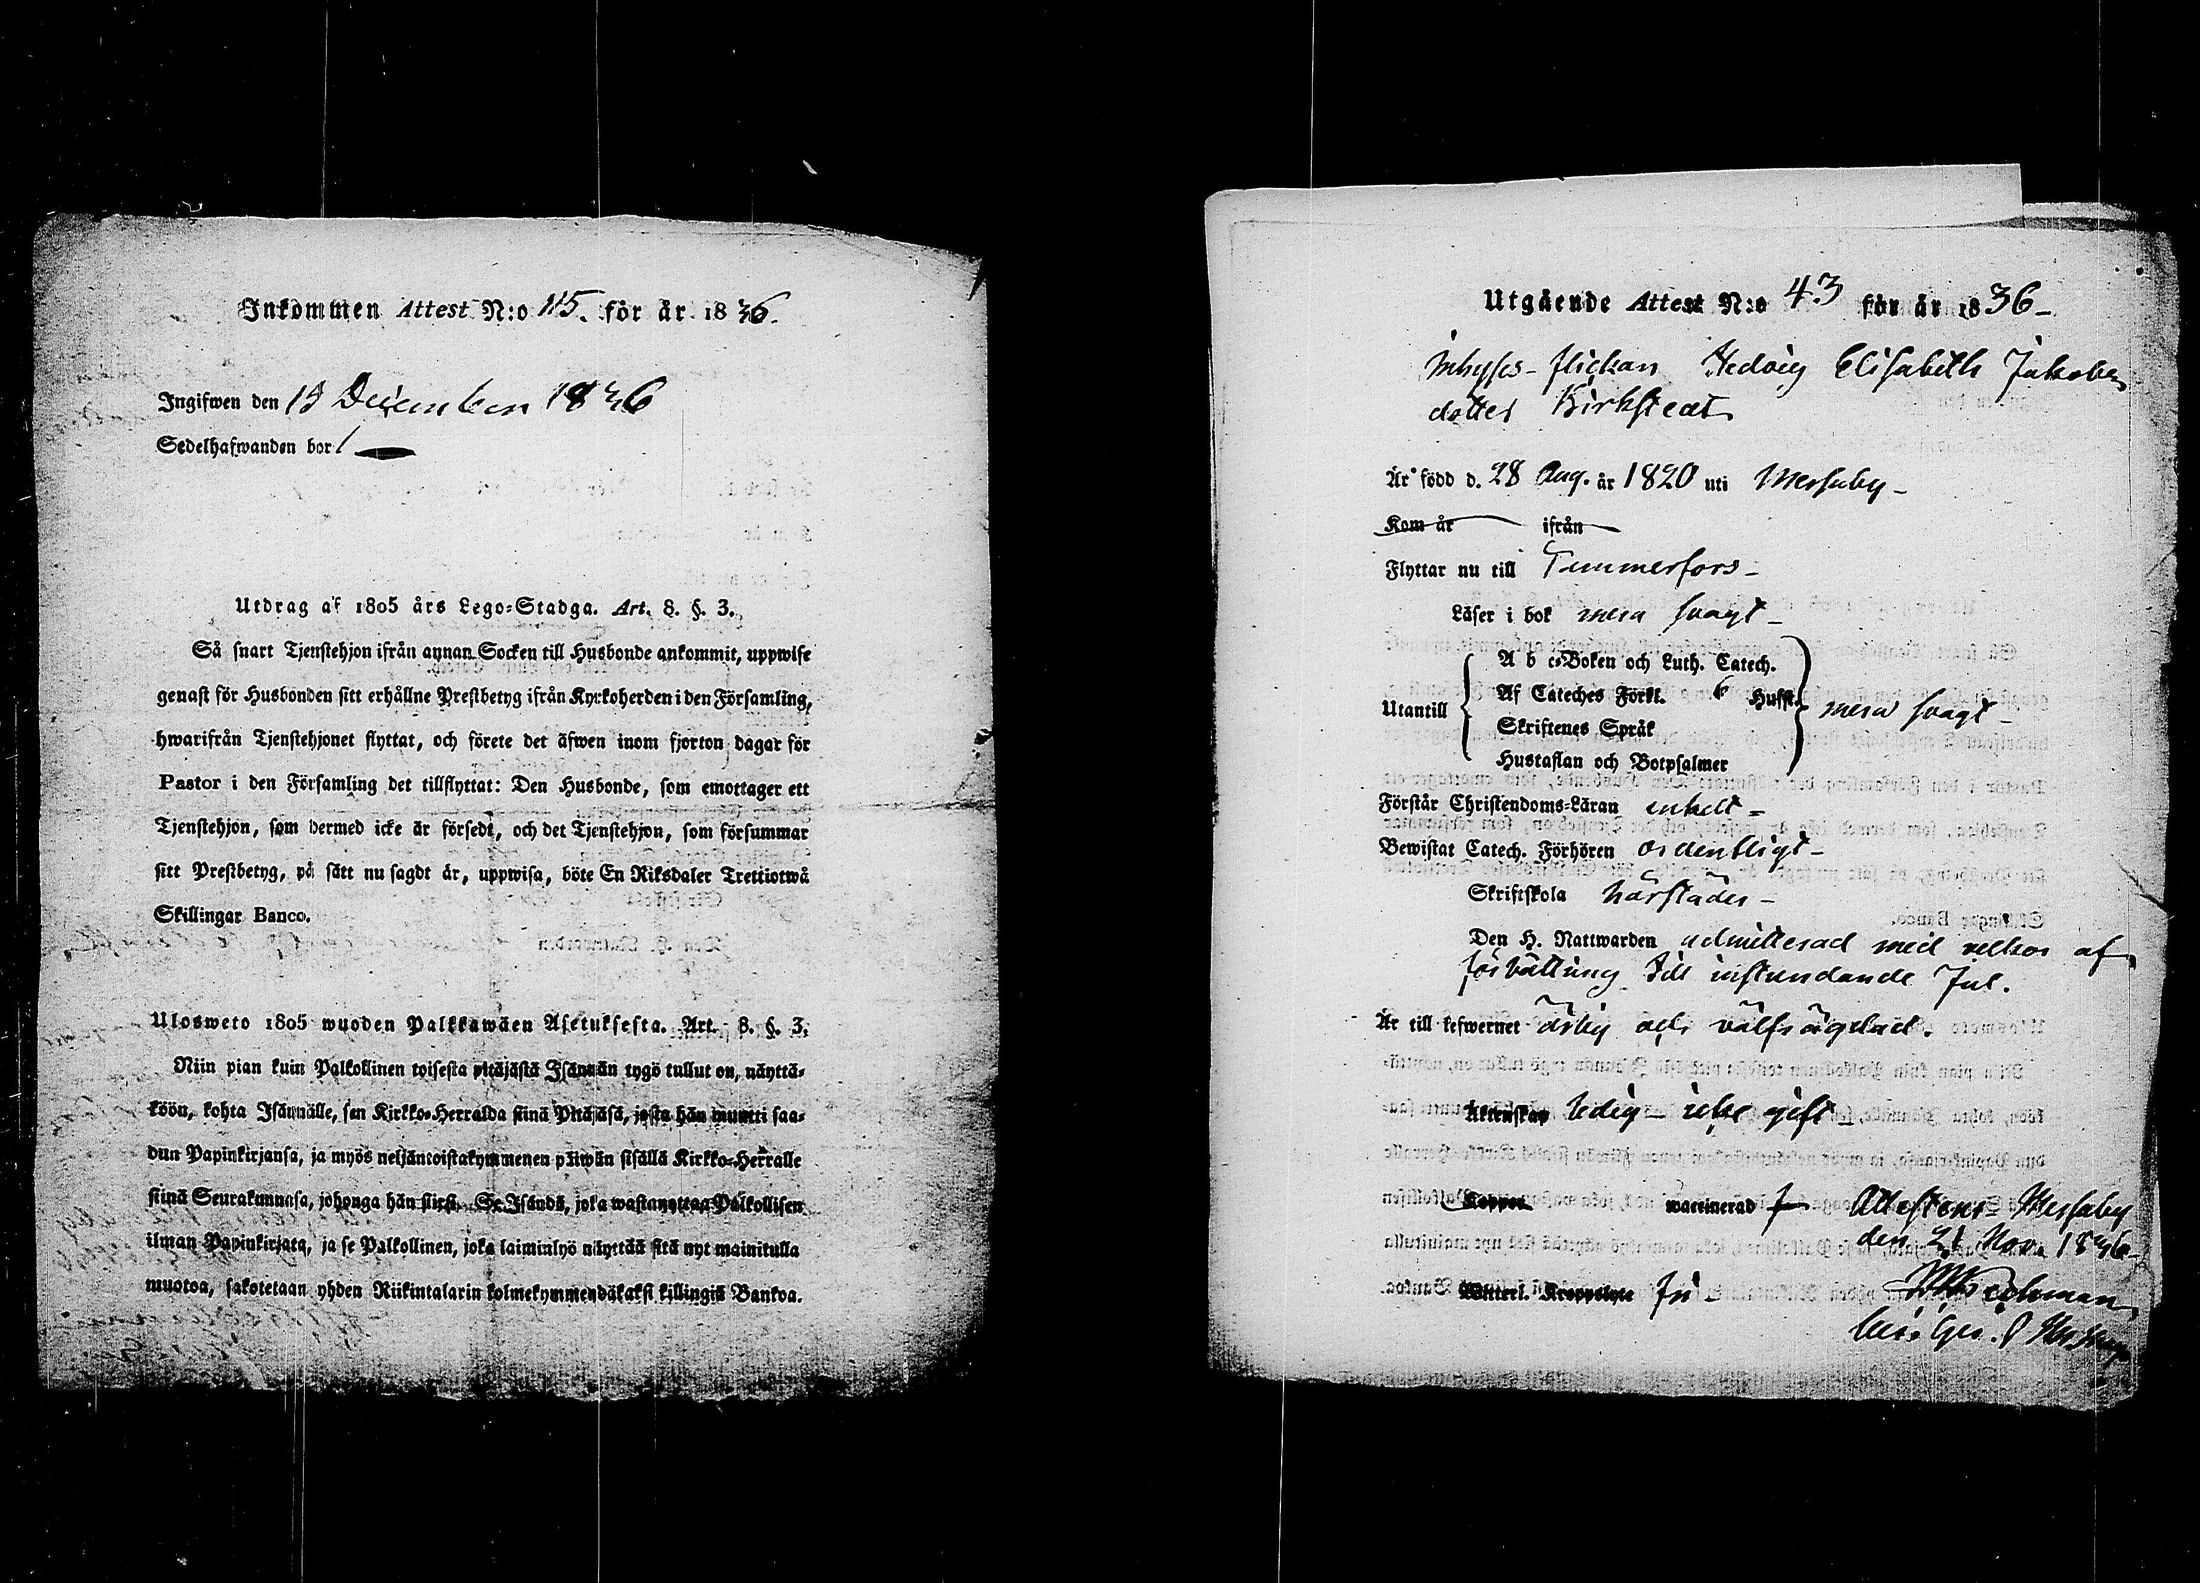 Inkommen Attest N:o 115. för år 1836.
Ingifwen den 13 December 1836
Sedelhafwanden bor i
Utdrag af 1805 års Lego-Stadga. Art. 8. §. 3.
Så snart Tjenstehjon ifrån annan Socken till Husbonde ankommit, uppwise
genast för Husbonden sitt erhållne Prestbetyg ifrån Kyrkoherden i den Församling,
hwarifrån Tjenstehjonet flyttat, och förete det äfwen inom fjorton dagar för
Pastor i den Församling det tillflyttat: Den Husbonde, som emottager ett
Tjenstehjon, som dermed icke är försedt, och det Tjenstehjon, som försummar
sitt Prestbetyg, på sätt nu sagdt är, uppwisa, böte En Riksdaler Trettiotwå
Skillingar Banco.
Ulosweto 1805 wuoden Palkkawäen Asetuksesta. Art. 8. §. 3.
Niin pian kuin Palkollinen toisesta pitäjästä Isännän tygö tullut on, näyttä-
köön, kohta Isännälle, sen Kirkko-Herralda siinä Pitäjäsä, josta hän muutti saa-
dun Papinkirjansa, ja myös neljäntoistakymmenen päiwän sisällä Kirkko-Herralle
siinä Seurakunnasa, johonga hän siirsi. Se Isändä, joka wastanottaa Palkollisen
ilman Papinkirjata, ja se Palkollinen, joka laiminlyö näyttää sitä nyt mainitulla
muotoa, sakotetaan yhden Riikintalarin kolmekymmendäkaksi killingiä Bankoa.
Utgående Attest N:o 43 för år 1836
Inhyses-flickan Hedvig Elisabeth Jakobs
dotter Kirkstedt
Är född d. 28 Aug. år 1820 uti Messuby
Kom år ifrån
Flyttar nu till Tammerfors
Läser i bok mera svagt
Utantill
A b c-Boken och Luth. Catech.
Af Cateches Förkl. 6 Hufst.
Skriftenes Språk
Hustaflan och Botpsalmer
mera svagt
Förstår Christendoms-Läran enkelt
Bewistat Catech. Förhören ordentligt
Skriftskola härstädes
Den H. Nattwarden admitterad med velkor af
förbättring till instundande Jul.
Är till lefwernet ärlig och välfrägdad.
Äktenskap ledig - icke gift
Koppor waccinerad
Attesterar Messuby
den 21 Nov. 1836
Witterl. Kroppslyte